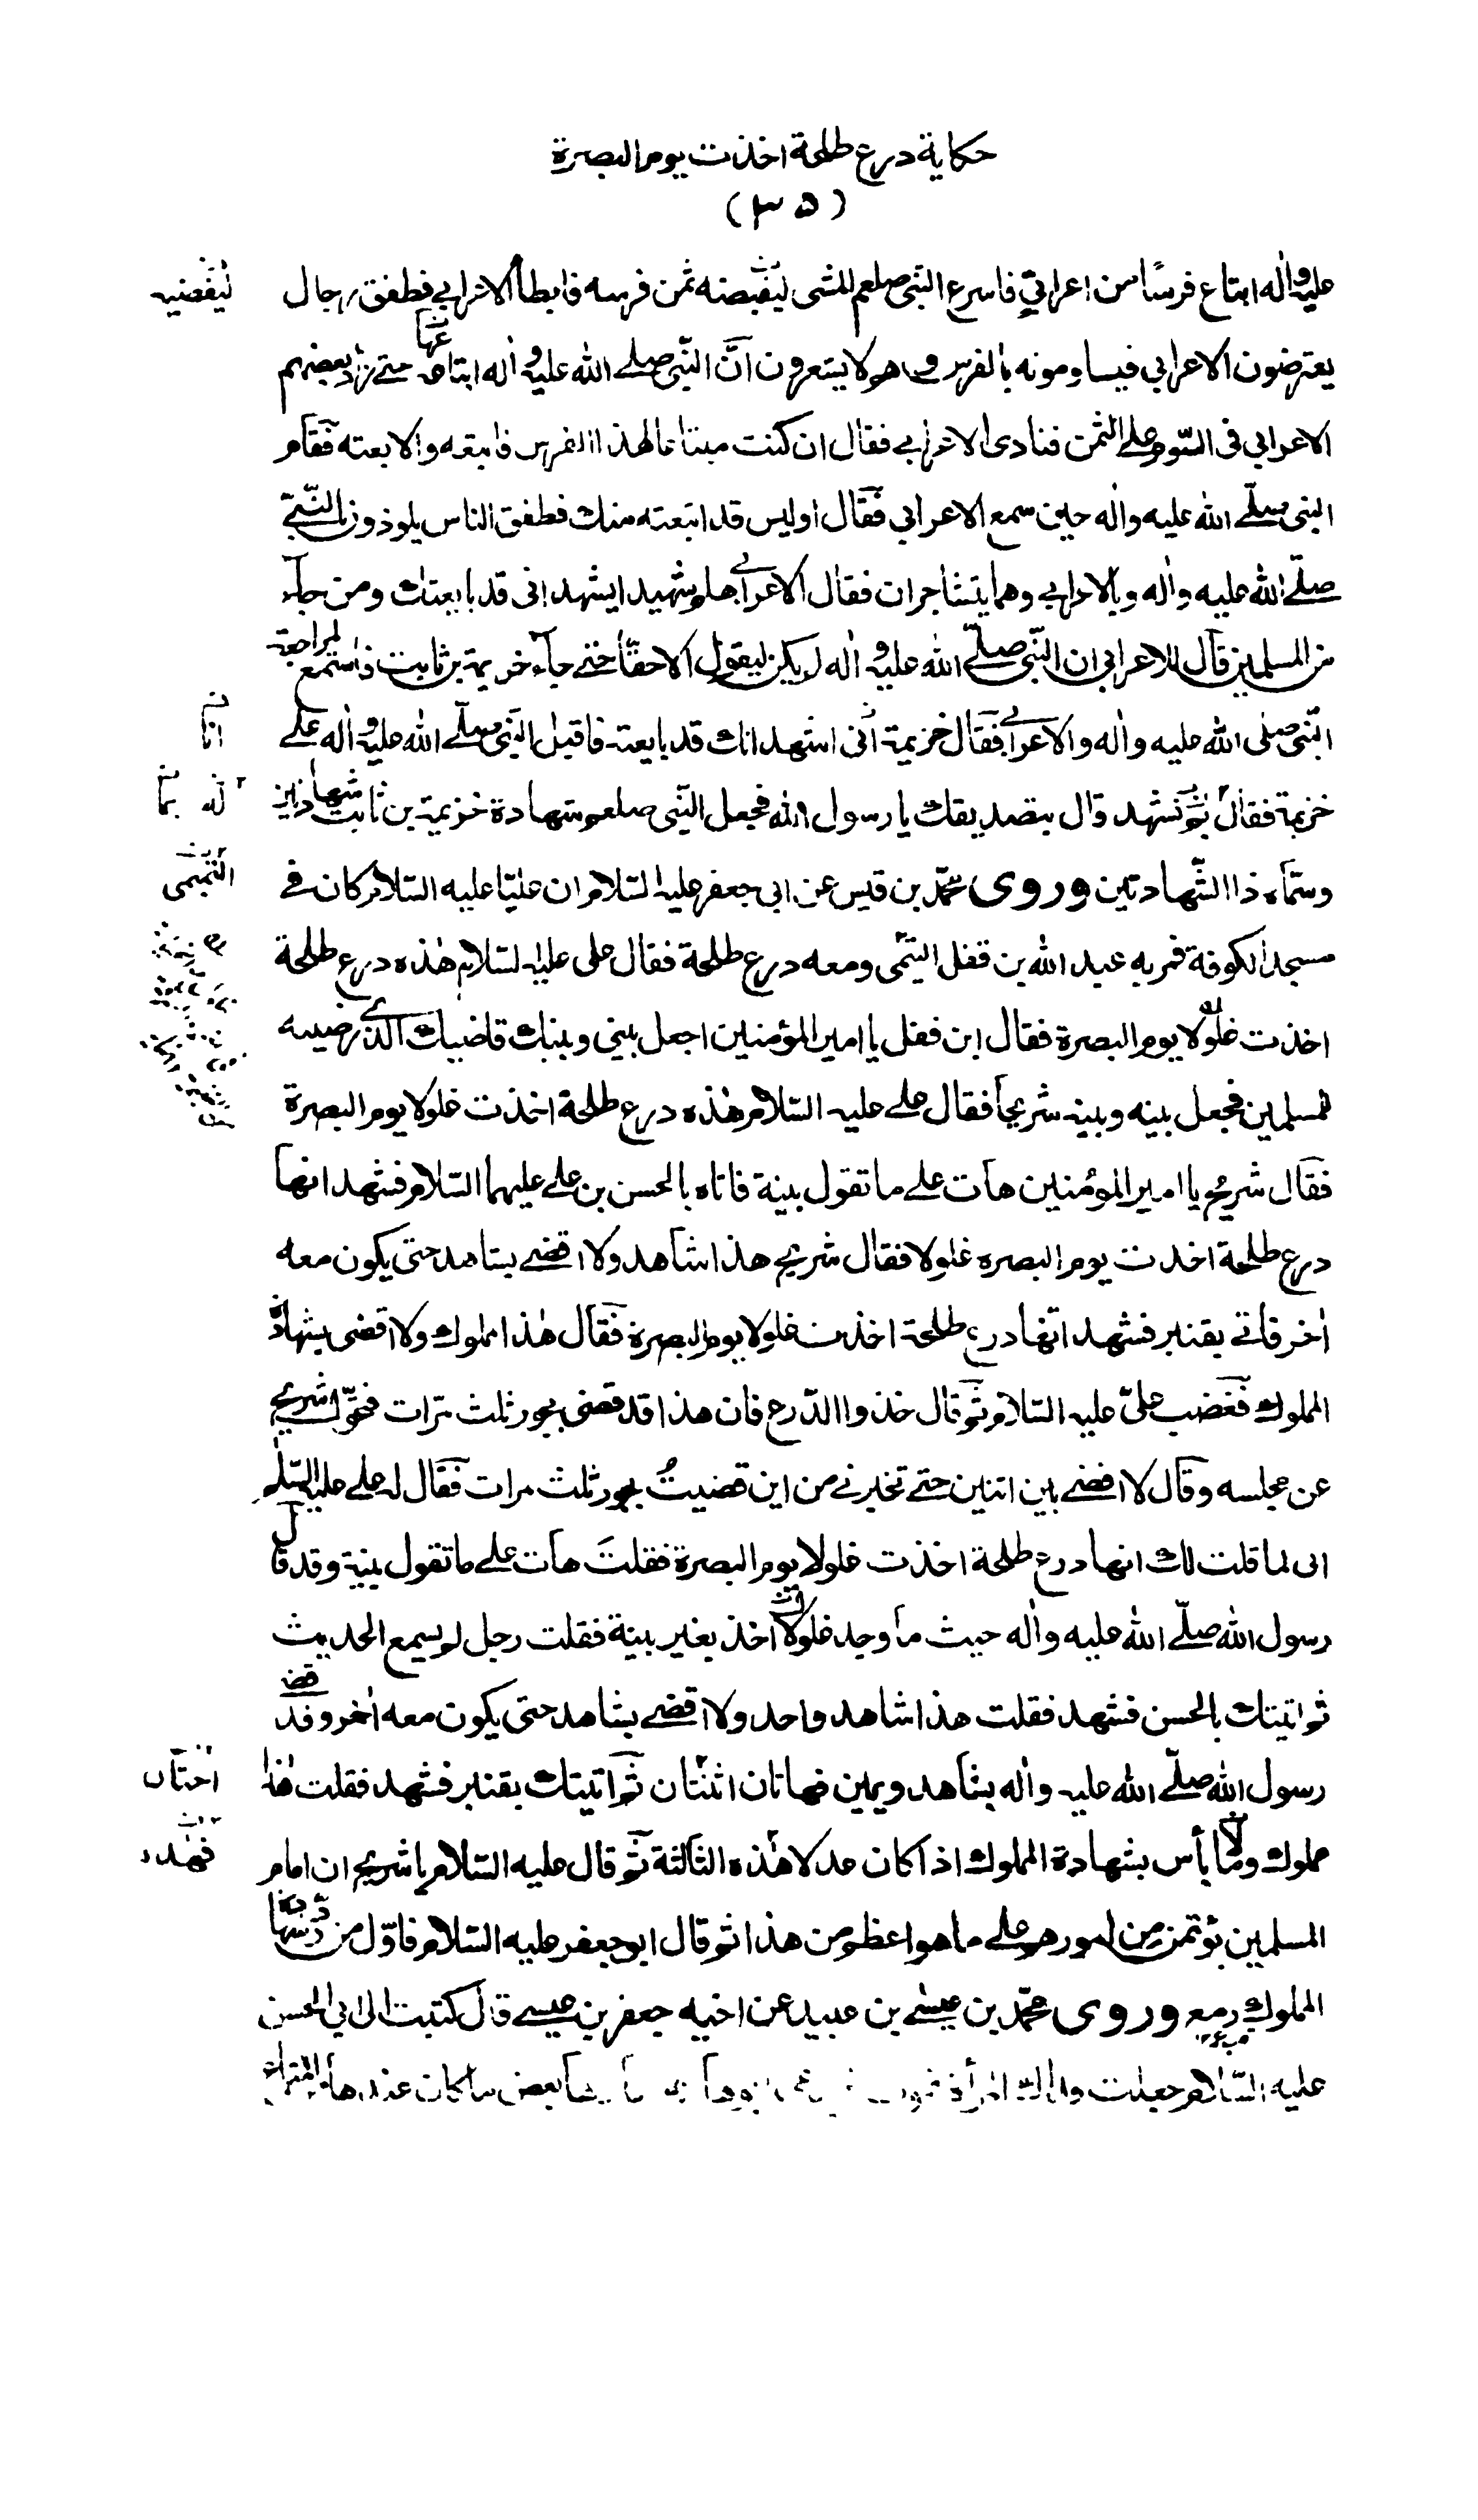 حكاية درع طلحة اخذت يوم البصرة
(٣٥)
عليه واٰله ابتاع فرسًا من اعرابيٍّ فاسرع النبي صلعم المشى ليقبضنه ثمن فرسه فابطأ الاعرابي فطفق رجال
ليقضيه
يعترضون الاعرابي فيساومونه بالفرس وهم لا يشعرون انّ النّبي صلے الله عليه و اٰله ابتاعه حتے زاد بعضهم
الاعرابي فى السّوم على الثمن فنادى الاعرابي فقال ان كنت مبتاعا لهذا الفرس فابتعه والا بعته فقام
النبى صلّے الله عليه واٰله حين سمع الاعرابي فقال اوليس قد ابتعته منك فطفق الناس يلوذون بالنّبيّ
صلّے الله عليه واٰله وبالاعرابي وهما يتشاجران فقال الاعرابي هلم شهيدا يشهد انى قد بايعتك ومن جاء
من المسلمين قال للاعرابي ان النّبي صلّے الله عليه و اٰله لم يكن ليقول الا حقّاً حتى جاء خزيمة بن ثابت فاستمع لمراجعة
النّبى صلى الله عليه واٰله والاعرابي فقال خزيمة انى اشهد انك قد بايعته فاقبل النّبي صلّے الله عليه و اٰله على
انا
خزيمة فقال بم تشهد قال بتصديقك يا رسول الله فجعل النّبي صلعم شهادة خزيمة بن ثابت شهادتين
له بما
وسمّاه ذا الشّهادتين وروى محمّد بن قيس عن ابى جعفر عليه السّلام ان عليّا عليه السّلام كان في
التميمى
مسجد الكوفة فمر به عبد الله بن قفل التيمّى ومعه درع طلحة فقال على عليه السلام هٰذه درع طلحة
اخذت غلولا يوم البصرة فقال ابن قفل يا امير المؤمنين اجعل بيني وبينك قاضيك الّذى رضيته
للمسلمين فجعل بينه وبينه شريحاً فقال علے عليه السّلام هٰذه درع طلحة اخذت غلولا يوم البصرة
فقال شريح يا امير المؤمنين هات علے ما تقول بينة فاتاه بالحسن بن علے عليهما السّلام فشهد انها
درع طلحة اخذت يوم البصره غلولا فقال شريح هذا شاهد ولا اقضے بشاهد حتى يكون معه
اٰخر فاتى بقنبر فشهد انّها درع طلحة اخذت غلولا يوم البصرة فقال هٰذا مملوك ولا اقضى بشهادة
المملوك فغضب علىّ عليه السّلام ثم قال خذوا الدّرع فان هذا قد قضى بجور ثلث مرّات فتحوّل شريح
عن مجلسه وقال لا اقضے بين اثنين حتے تخبرنے من اين قضيتُ بجور ثلث مرات فقال له علے عليه السّلام
انى لما قلت لك انها درع طلحة اخذت غلولا يوم البصرة فقلتَ هات علے ما تقول بينة وقد قال
رسول الله صلّے الله عليه واٰله حيث ما وجد غلولا اخذ بغير بينة فقلت رجل لم يسمع الحديث
ثم اتيتك بالحسن فشهد فقلت هذا شاهد واحد ولا اقضے بشاهد حتى يكون معه اٰخر وقد قضى
رسول الله صلّے الله عليه واٰله بشاهد ويمين فهاتان اثنتان ثم اتيتك بقنبر فشهد فقلت هٰذا
مملوك وما بأس بشهادة المملوك اذا كان عدلا هٰذه الثالثة ثم قال عليه السّلام يا شريح ان امام
المسلمين يؤتمن من امورهم على ما هو اعظم من هذا ثم قال ابو جعفر عليه السّلام فاوّل من ردّ شهادة
المملوك رمع وروى محمّد بن عيسٰے بن عبيد عن اخيه جعفر بن عيسے قال كتبت الى ابي الحسن
عليه السّلام جعلت فداك المرأة بعض ما كان عندها